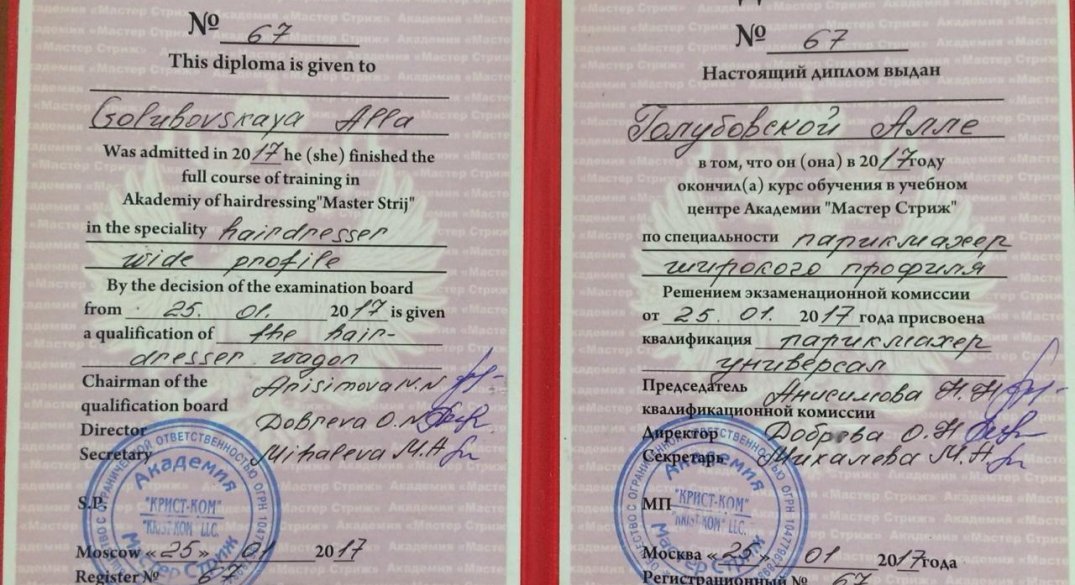 № 67
This diploma is given to
Golubovskaya Alla
Was admitted in 2017 he (she) finished the
full course of training in
Akademiy of hairdressing"Master Strij"
in the speciality hairdresser
wide profile
By the decision of the examination board
from 25. 01. 2017 is given
a qualification of the hair-
dresser wagon
Chairman of the
qualification board Anisimova N.N
Director Dobreva O.N
Secretary Mihaleva M.A
S.P.
Академия
"КРИСТ-КОМ"
"KRIST-KOM" LLC.
Мастер Стриж
Moscow « 25 » 01 2017
Register № 67
№ 67
Настоящий диплом выдан
Голубовской Алле
в том, что он (она) в 2017году
окончил(а) курс обучения в учебном
центре Академии "Мастер Стриж"
по специальности парикмахер
широкого профиля
Решением экзаменационной комиссии
от 25. 01. 2017 года присвоена
квалификация парикмахер
универсал
Председатель Анисимова Н.Н
квалификационной комиссии
Директор Добрева О.Н
Секретарь Михалева М.А
МП
Академия
"КРИСТ-КОМ"
"KRIST-KOM" LLC.
Мастер Стриж
Москва « 25 » 01 2017года
Регистрационный № 67